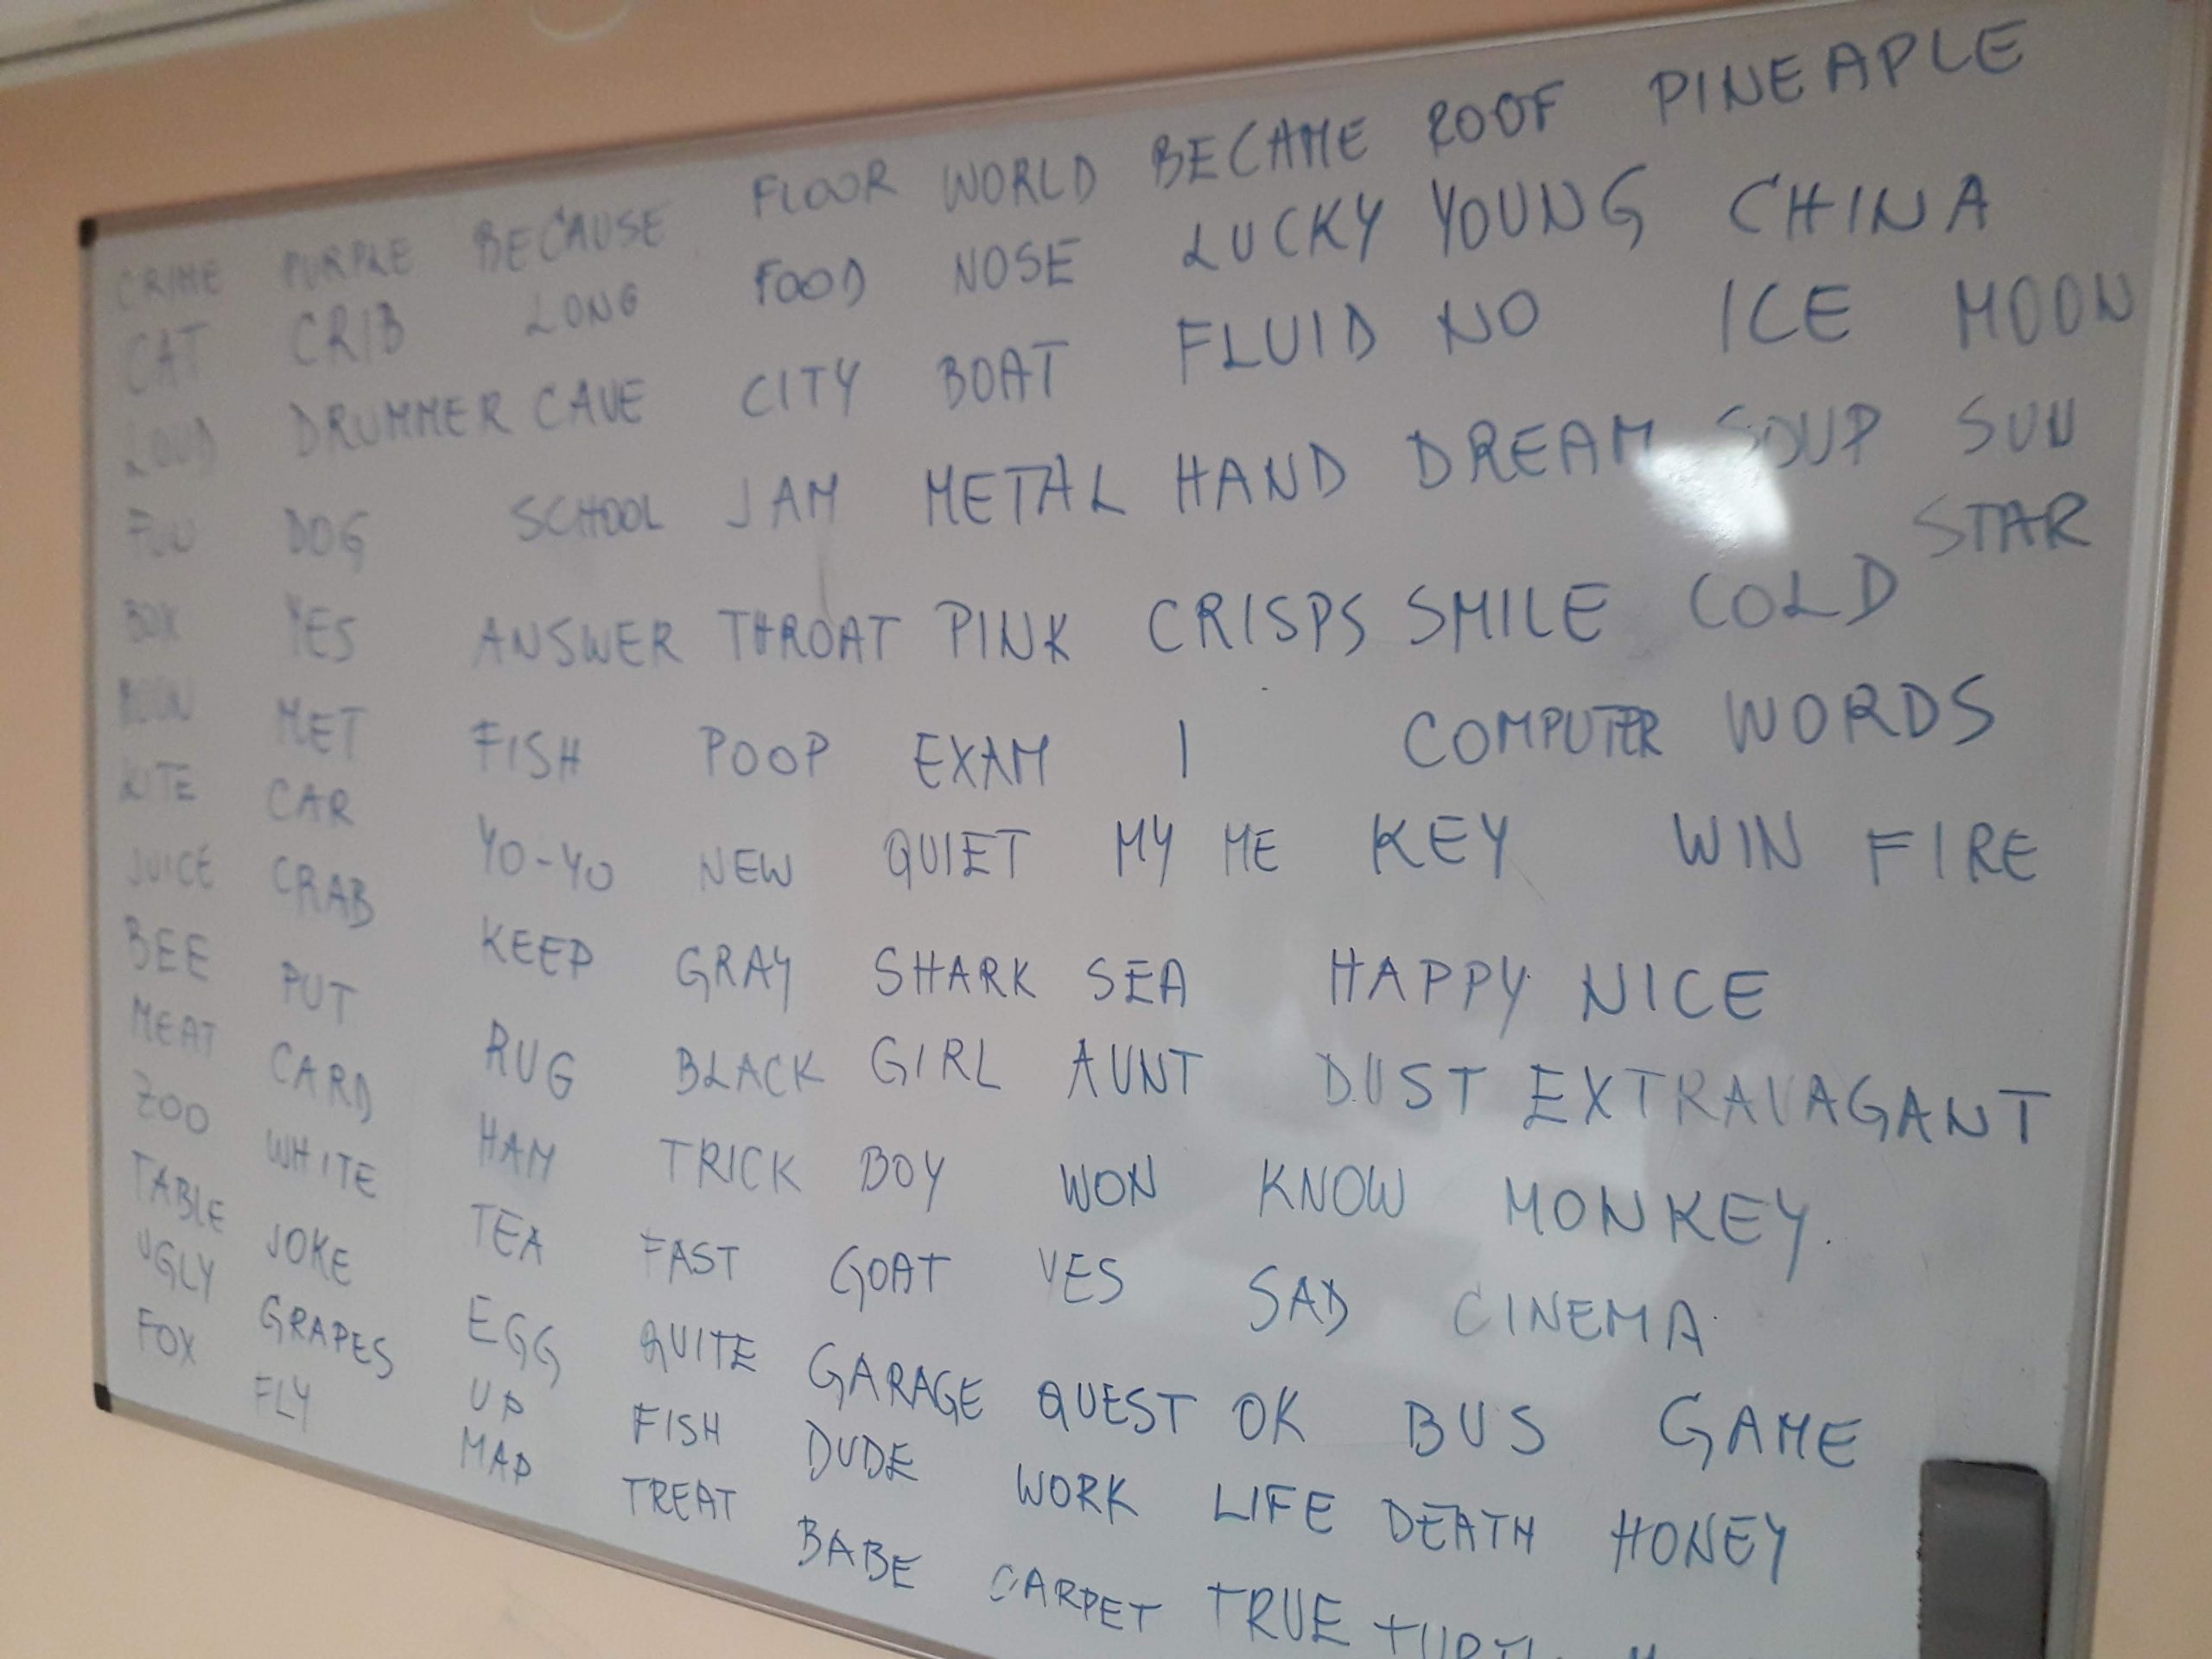 CRIME PURPLE BECAUSE FLOOR WORLD BECAME ROOF PINEAPLE
CAT CRIB LONG FOOD NOSE LUCKY YOUNG CHINA
LOUD DRUMMER CAVE CITY BOAT FLUID NO ICE MOON
FUN DOG SCHOOL JAM METAL HAND DREAM SOUP SUN
STAR
BOX YES ANSWER THROAT PINK CRISPS SMILE COLD
MET FISH POOP EXAM I COMPUTER WORDS
KITE CAR YO-YO NEW QUIET MY ME KEY WIN FIRE
JUICE CRAB KEEP GRAY SHARK SEA HAPPY NICE
BEE PUT RUG BLACK GIRL AUNT DUST EXTRAVAGANT
MEAT CARD HAM TRICK BOY WON KNOW MONKEY
ZOO WHITE TEA FAST GOAT YES SAD CINEMA
TABLE JOKE EGG QUITE GARAGE QUEST OK BUS GAME
UGLY GRAPES UP FISH DUDE WORK LIFE DEATH HONEY
FOX FLY MAP TREAT BABE CARPET TRUE